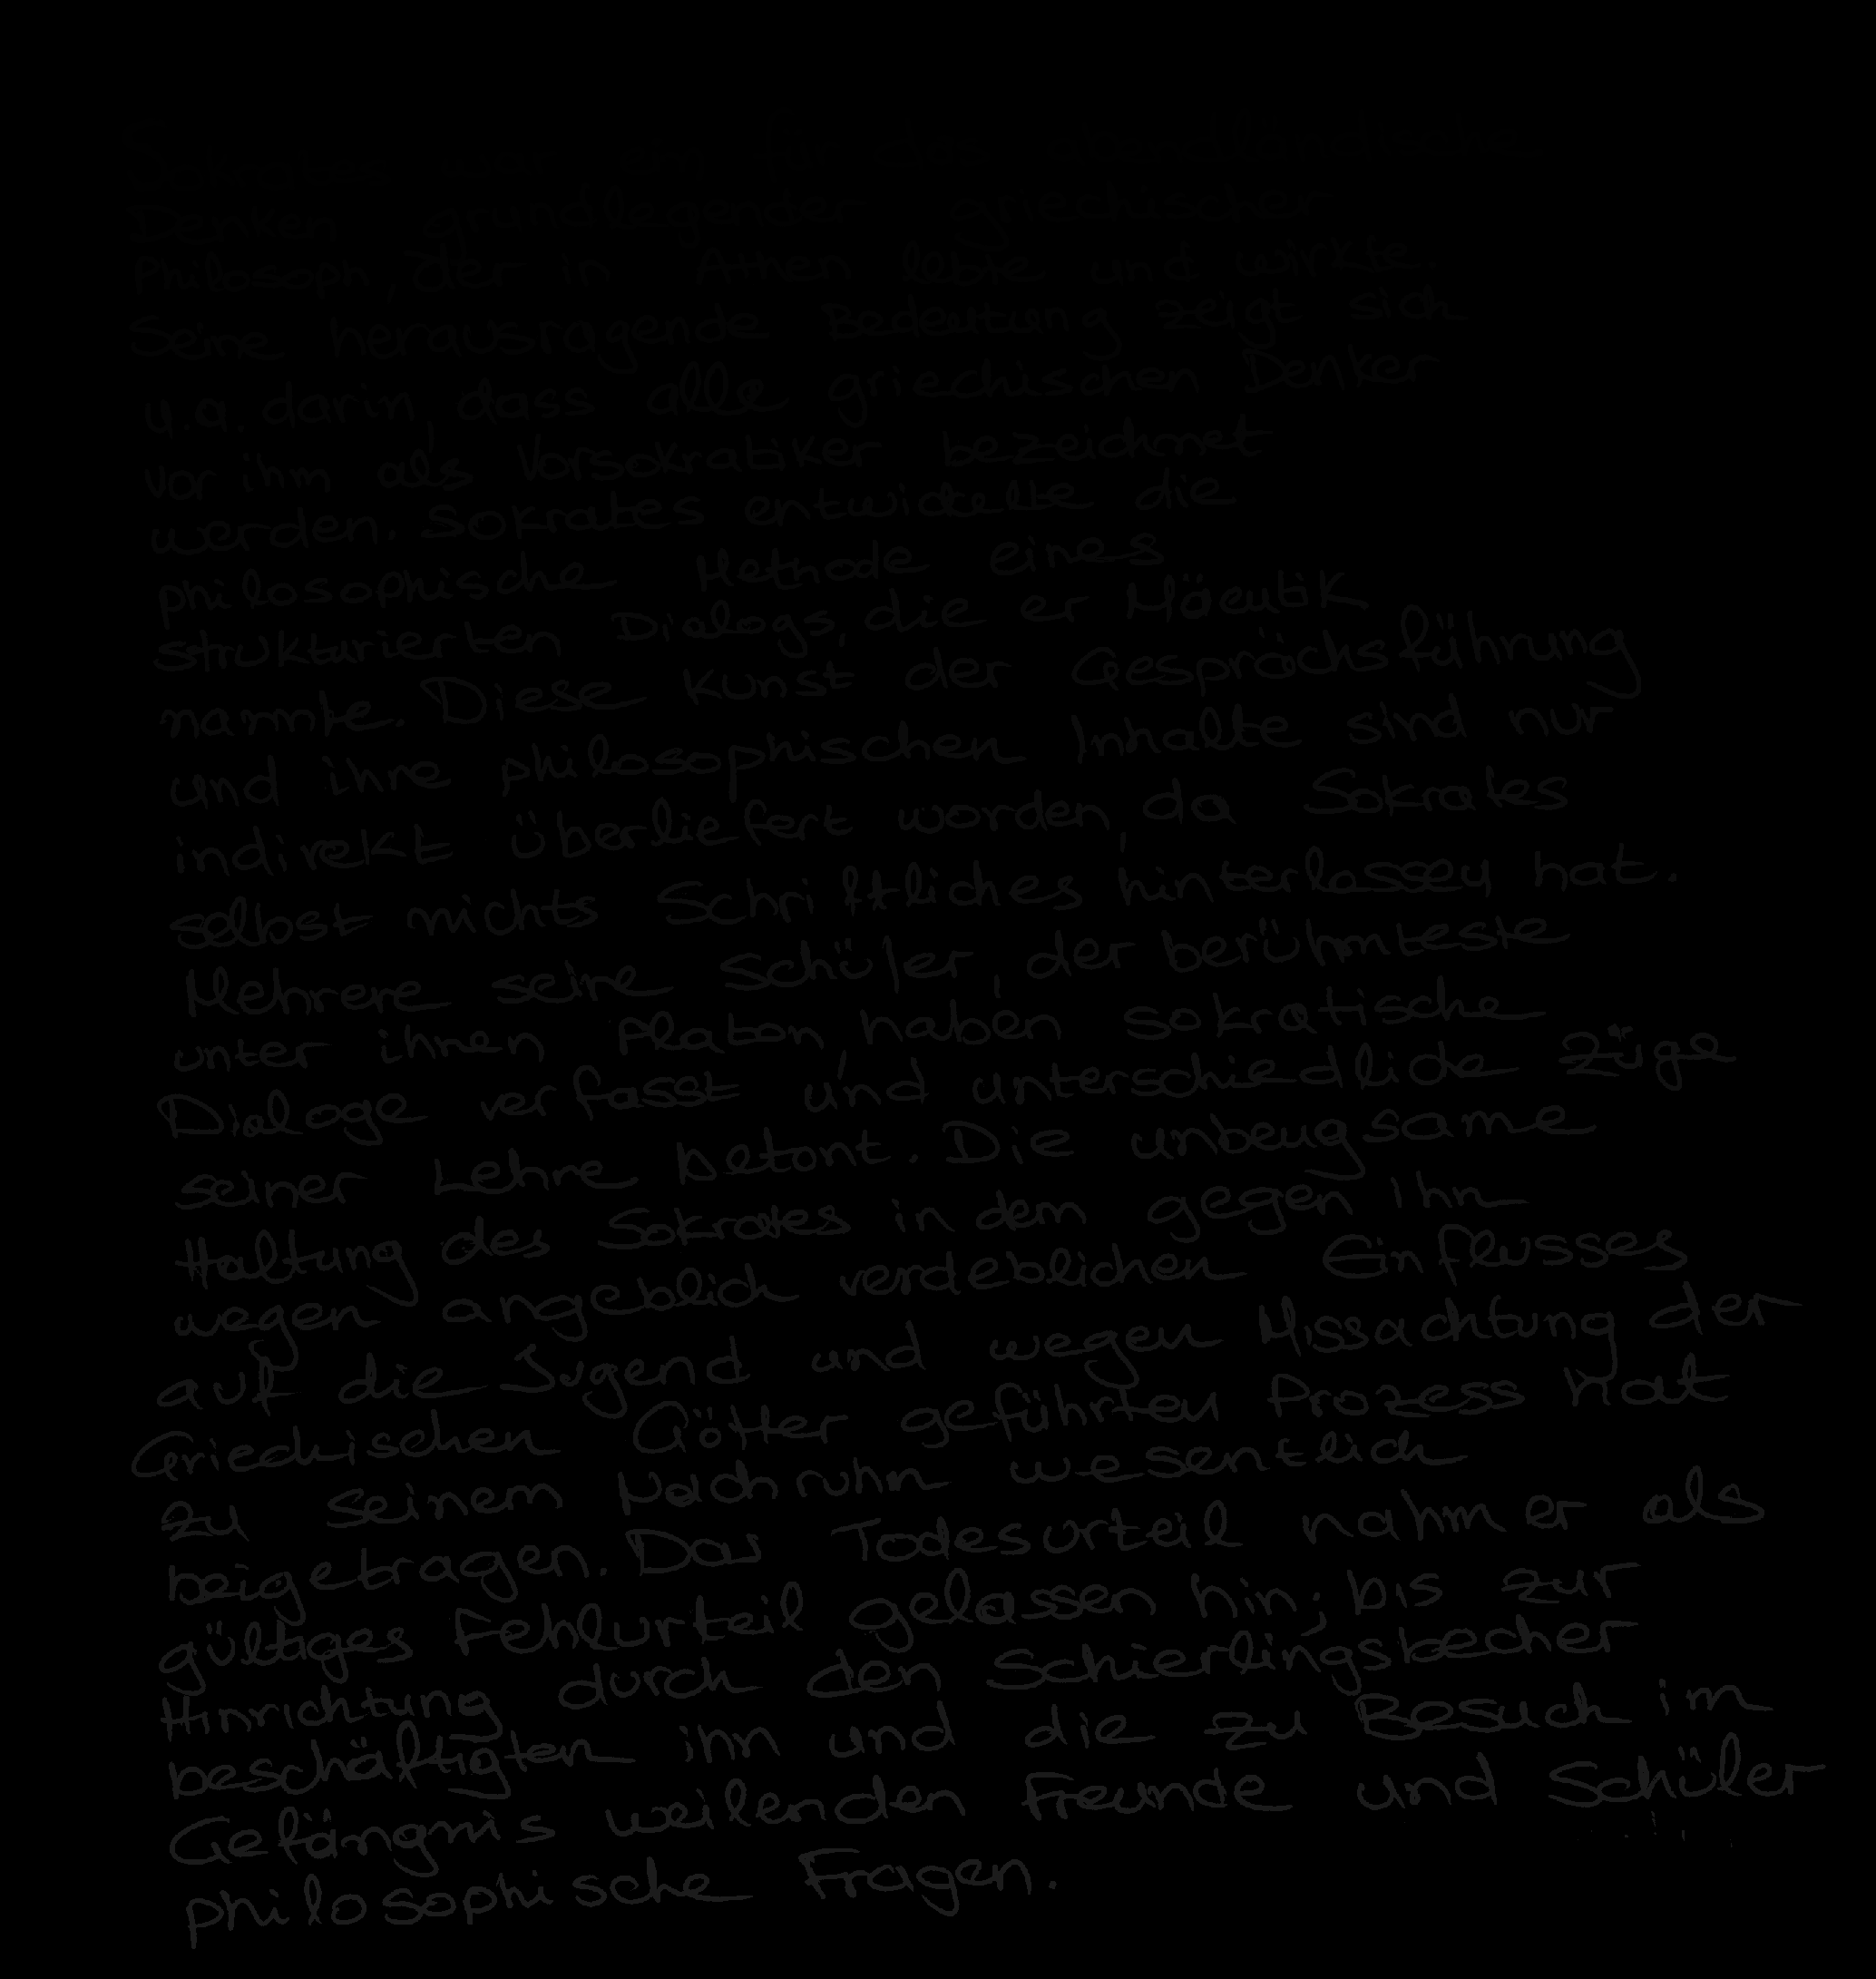 Sokrates war ein für das abendländische
Denken grundlegender griechischer
Philosoph, der in Athen lebte und wirkte.
Seine herausragende Bedeutung zeigt sich
u.a. darin, dass alle griechischen Denker
vor ihm als Vorsokratiker bezeichnet
werden. Sokrates entwickelte die
philosophische Methode eines
strukturierten Dialogs, die er Mäeutik
nannte. Diese Kunst der Gesprächsführung
und ihre philosophischen Inhalte sind nur
indirekt überliefert worden, da Sokrates
selbst nichts Schriftliches hinterlassen hat.
Mehrere seine Schüler, der berühmteste
unter ihnen Platon, haben sokratische
Dialoge verfasst und unterschiedliche Züge
seiner Lehre betont. Die unbeugsame
Haltung des Sokrates in dem gegen ihn
wegen angeblich verdeblichen Einflusses
auf die Jugend und wegen Missachtung der
Griechischen Götter geführten Prozess hat
zu seinem Nachruhm wesentlich
beigetragen. Das Todesurteil nahm er als
gültiges Fehlurteil gelassen hin; bis zur
Hinrichtung durch den Schierlingsbecher
beschäftigten ihn und die zu Besuch im
Gefängnis weilenden Freunde und Schüler
philosophische Fragen.